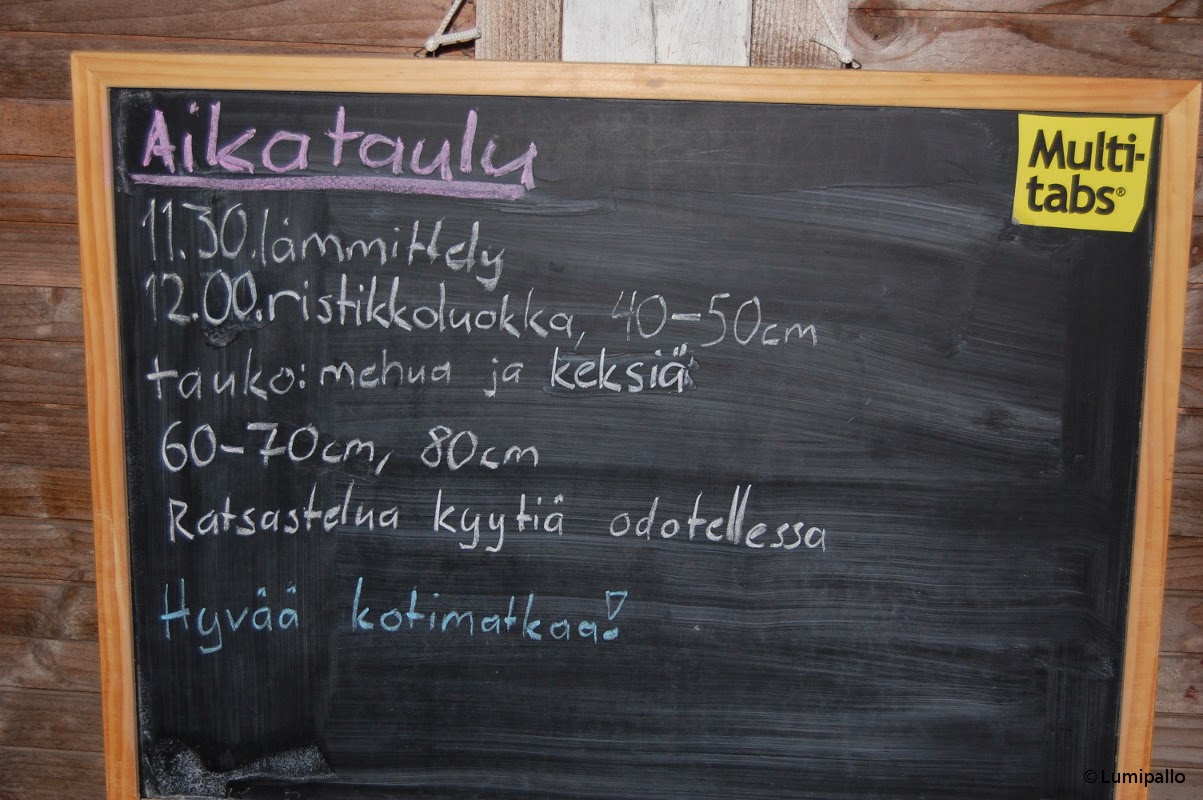 Aikataulu
Multi-
tabs®
11.30.lämmittely
12.00.ristikkoluokka, 40-50cm
tauko: mehua ja keksiä
60-70cm, 80cm
Ratsastelua kyytiä odotellessa
Hyvää kotimatkaa!
© Lumipallo